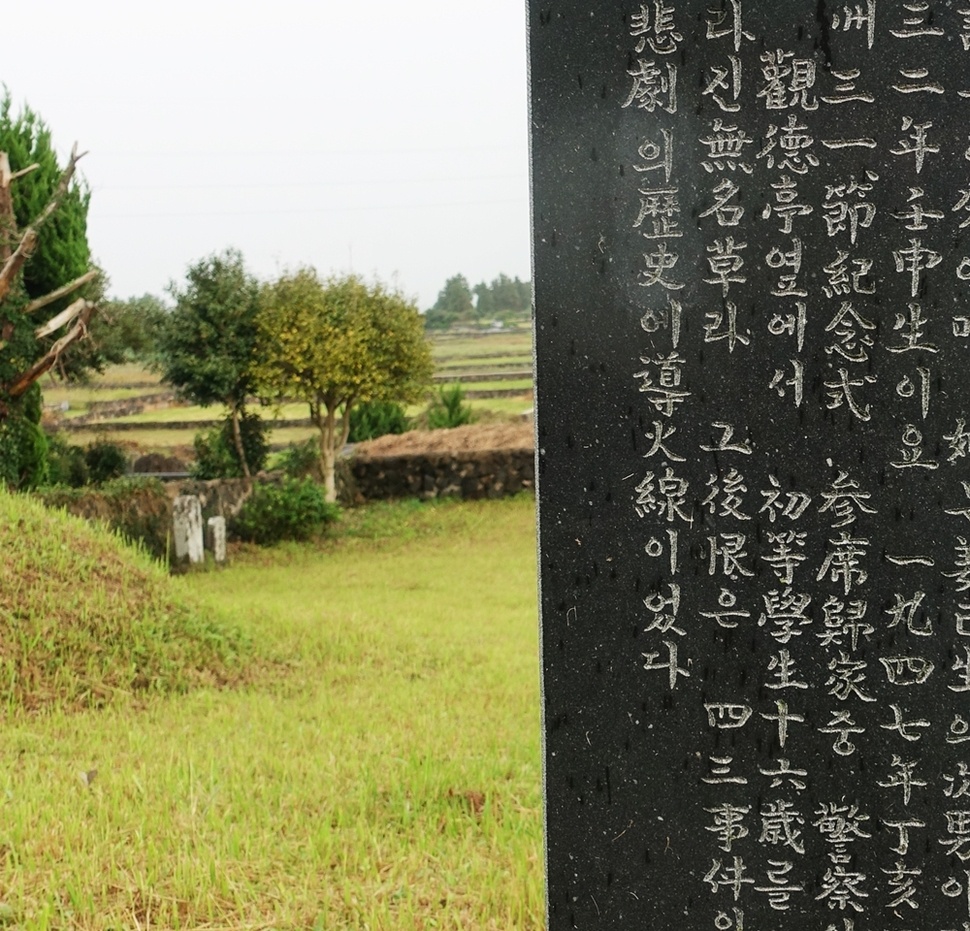 三二年壬申生이요 一九四七年丁亥
洲三一節紀念式 參席歸家중 警察
觀德亭옆에서 初等學生十六歲를
라진無名草라 그後恨은 四三事件이
悲劇의歷史에導火線이었다